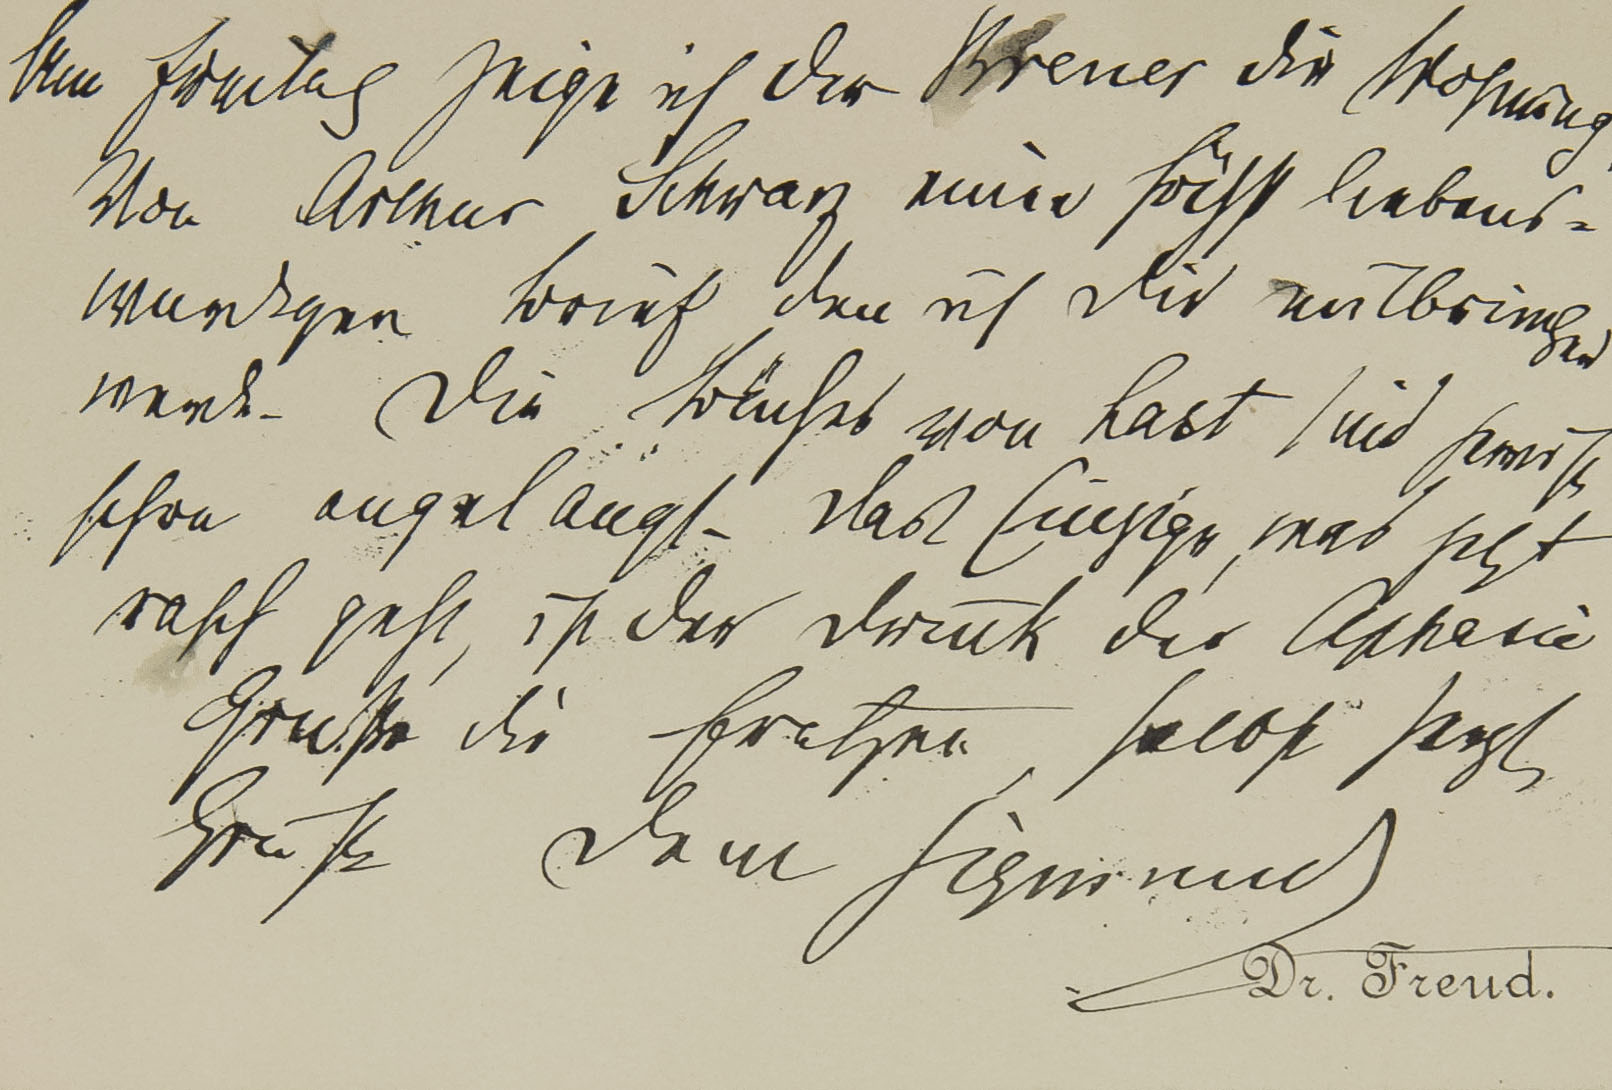 Am Freitag zeige ich der Brener die Wohnung,
Von Arthur Schwarz einen höchst liebens-
würdigen Brief den ich Dir mitbringen
werde. Die Bücher von hast sind gewiß
schon angelangt. Das Einzige, was jetzt
rasch geht, ist der Druck der Aphasie
Grüße die Fratzen, selbst herzl
Gruß Dein Sigmund
Dr. Freud.